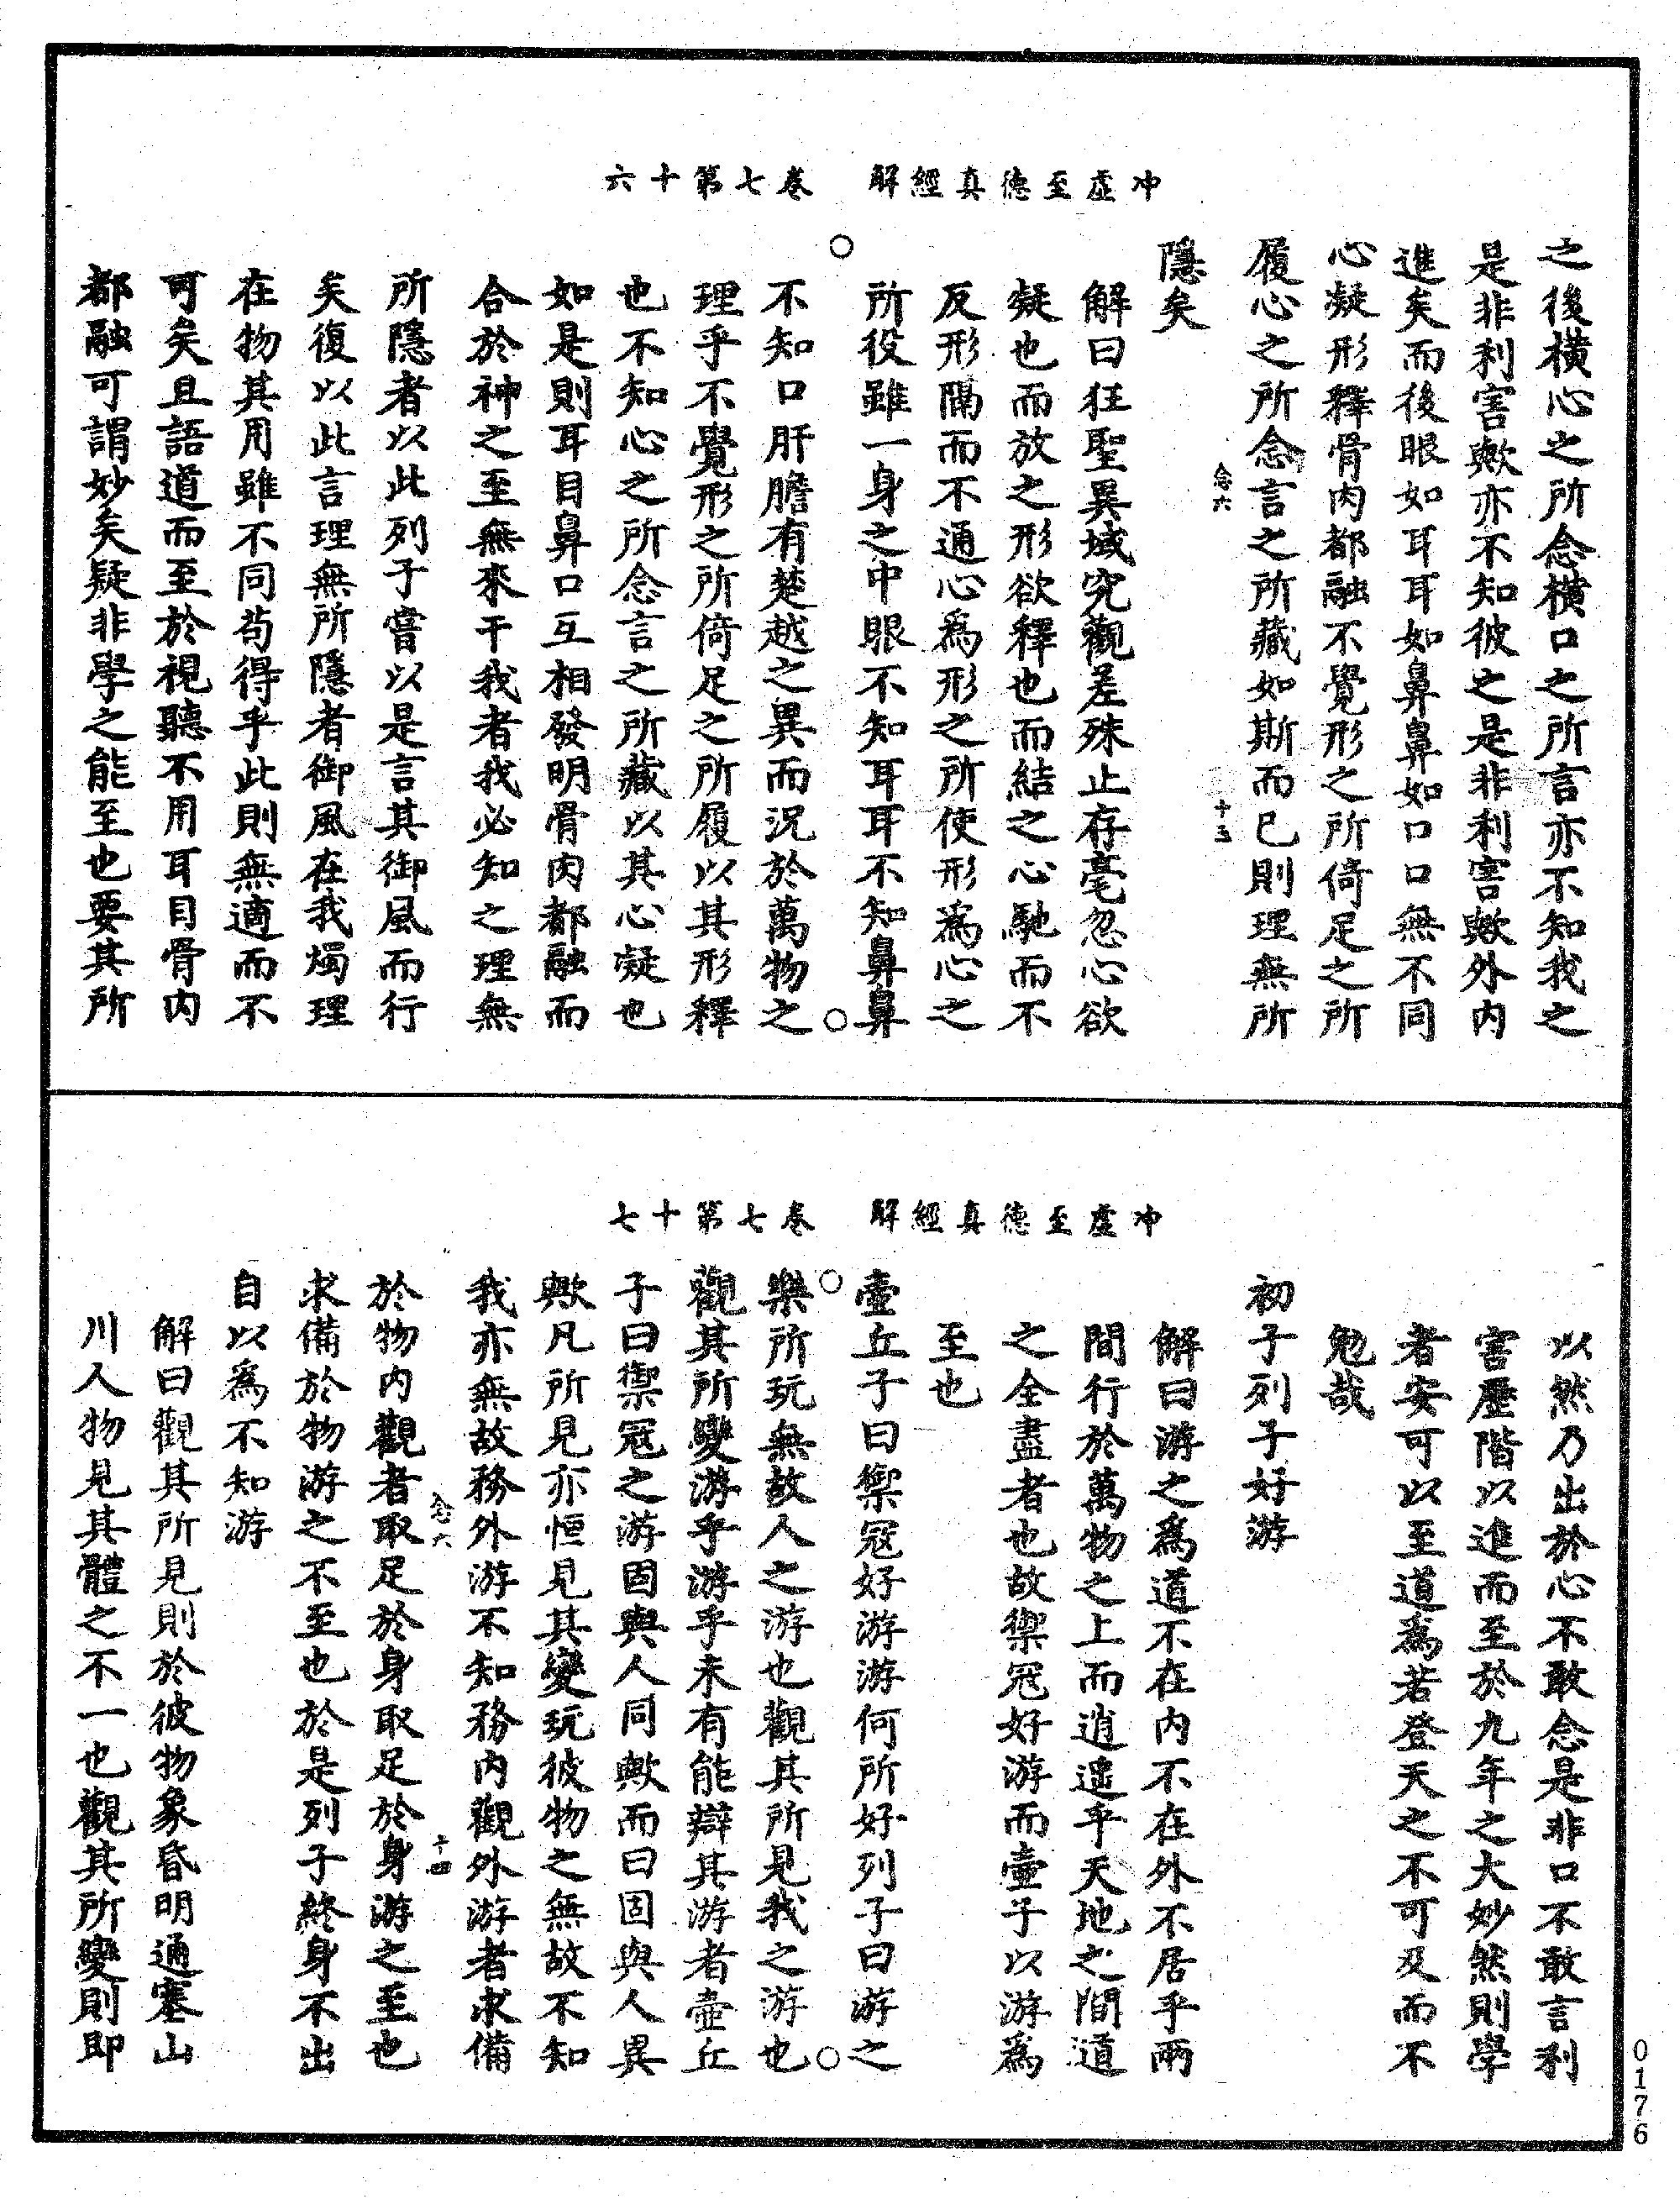 冲虛至德真經解　卷七第十六
之後橫心之所念橫口之所言亦不知我之
是非利害歟亦不知彼之是非利害歟外內
進矣而後眼如耳耳如鼻鼻如口口無不同
心凝形釋骨肉都融不覺形之所倚足之所
履心之所念言之所藏如斯而已則理無所
念六　十三
隱矣
解曰狂聖異域究觀差殊止存毫忽心欲
凝也而放之形欲釋也而結之心馳而不
反形隔而不通心為形之所使形為心之
所役雖一身之中眼不知耳耳不知鼻鼻
不知口肝膽有楚越之異而況於萬物之
理乎不覺形之所倚足之所履以其形釋
也不知心之所念言之所藏以其心凝也
如是則耳目鼻口互相發明骨肉都融而
合於神之至無來干我者我必知之理無
所隱者以此列子嘗以是言其御風而行
矣復以此言理無所隱者御風在我燭理
在物其用雖不同苟得乎此則無適而不
可矣且語道而至於視聽不用耳目骨肉
都融可謂妙矣疑非學之能至也要其所
冲虛至德真經解　卷七第十七
以然乃出於心不敢念是非口不敢言利
害歷階以進而至於九年之大妙然則學
者安可以至道為若登天之不可及而不
勉哉
初子列子好游
解曰游之為道不在內不在外不居乎兩
間行於萬物之上而逍遥乎天地之間道
之全盡者也故禦冦好游而壷子以游為
至也
壷丘子曰禦冦好游游何所好列子曰游之
樂所玩無故人之游也觀其所見我之游也
觀其所變游乎游乎未有能辯其游者壷丘
子曰禦冦之游固與人同歟而曰固與人異
歟凡所見亦恒見其變玩彼物之無故不知
我亦無故務外游不知務內觀外游者求備
念六　十四
於物內觀者取足於身取足於身游之至也
求備於物游之不至也於是列子終身不出
自以為不知游
解曰觀其所見則於彼物象昏明通塞山
川人物見其體之不一也觀其所變則即
0176